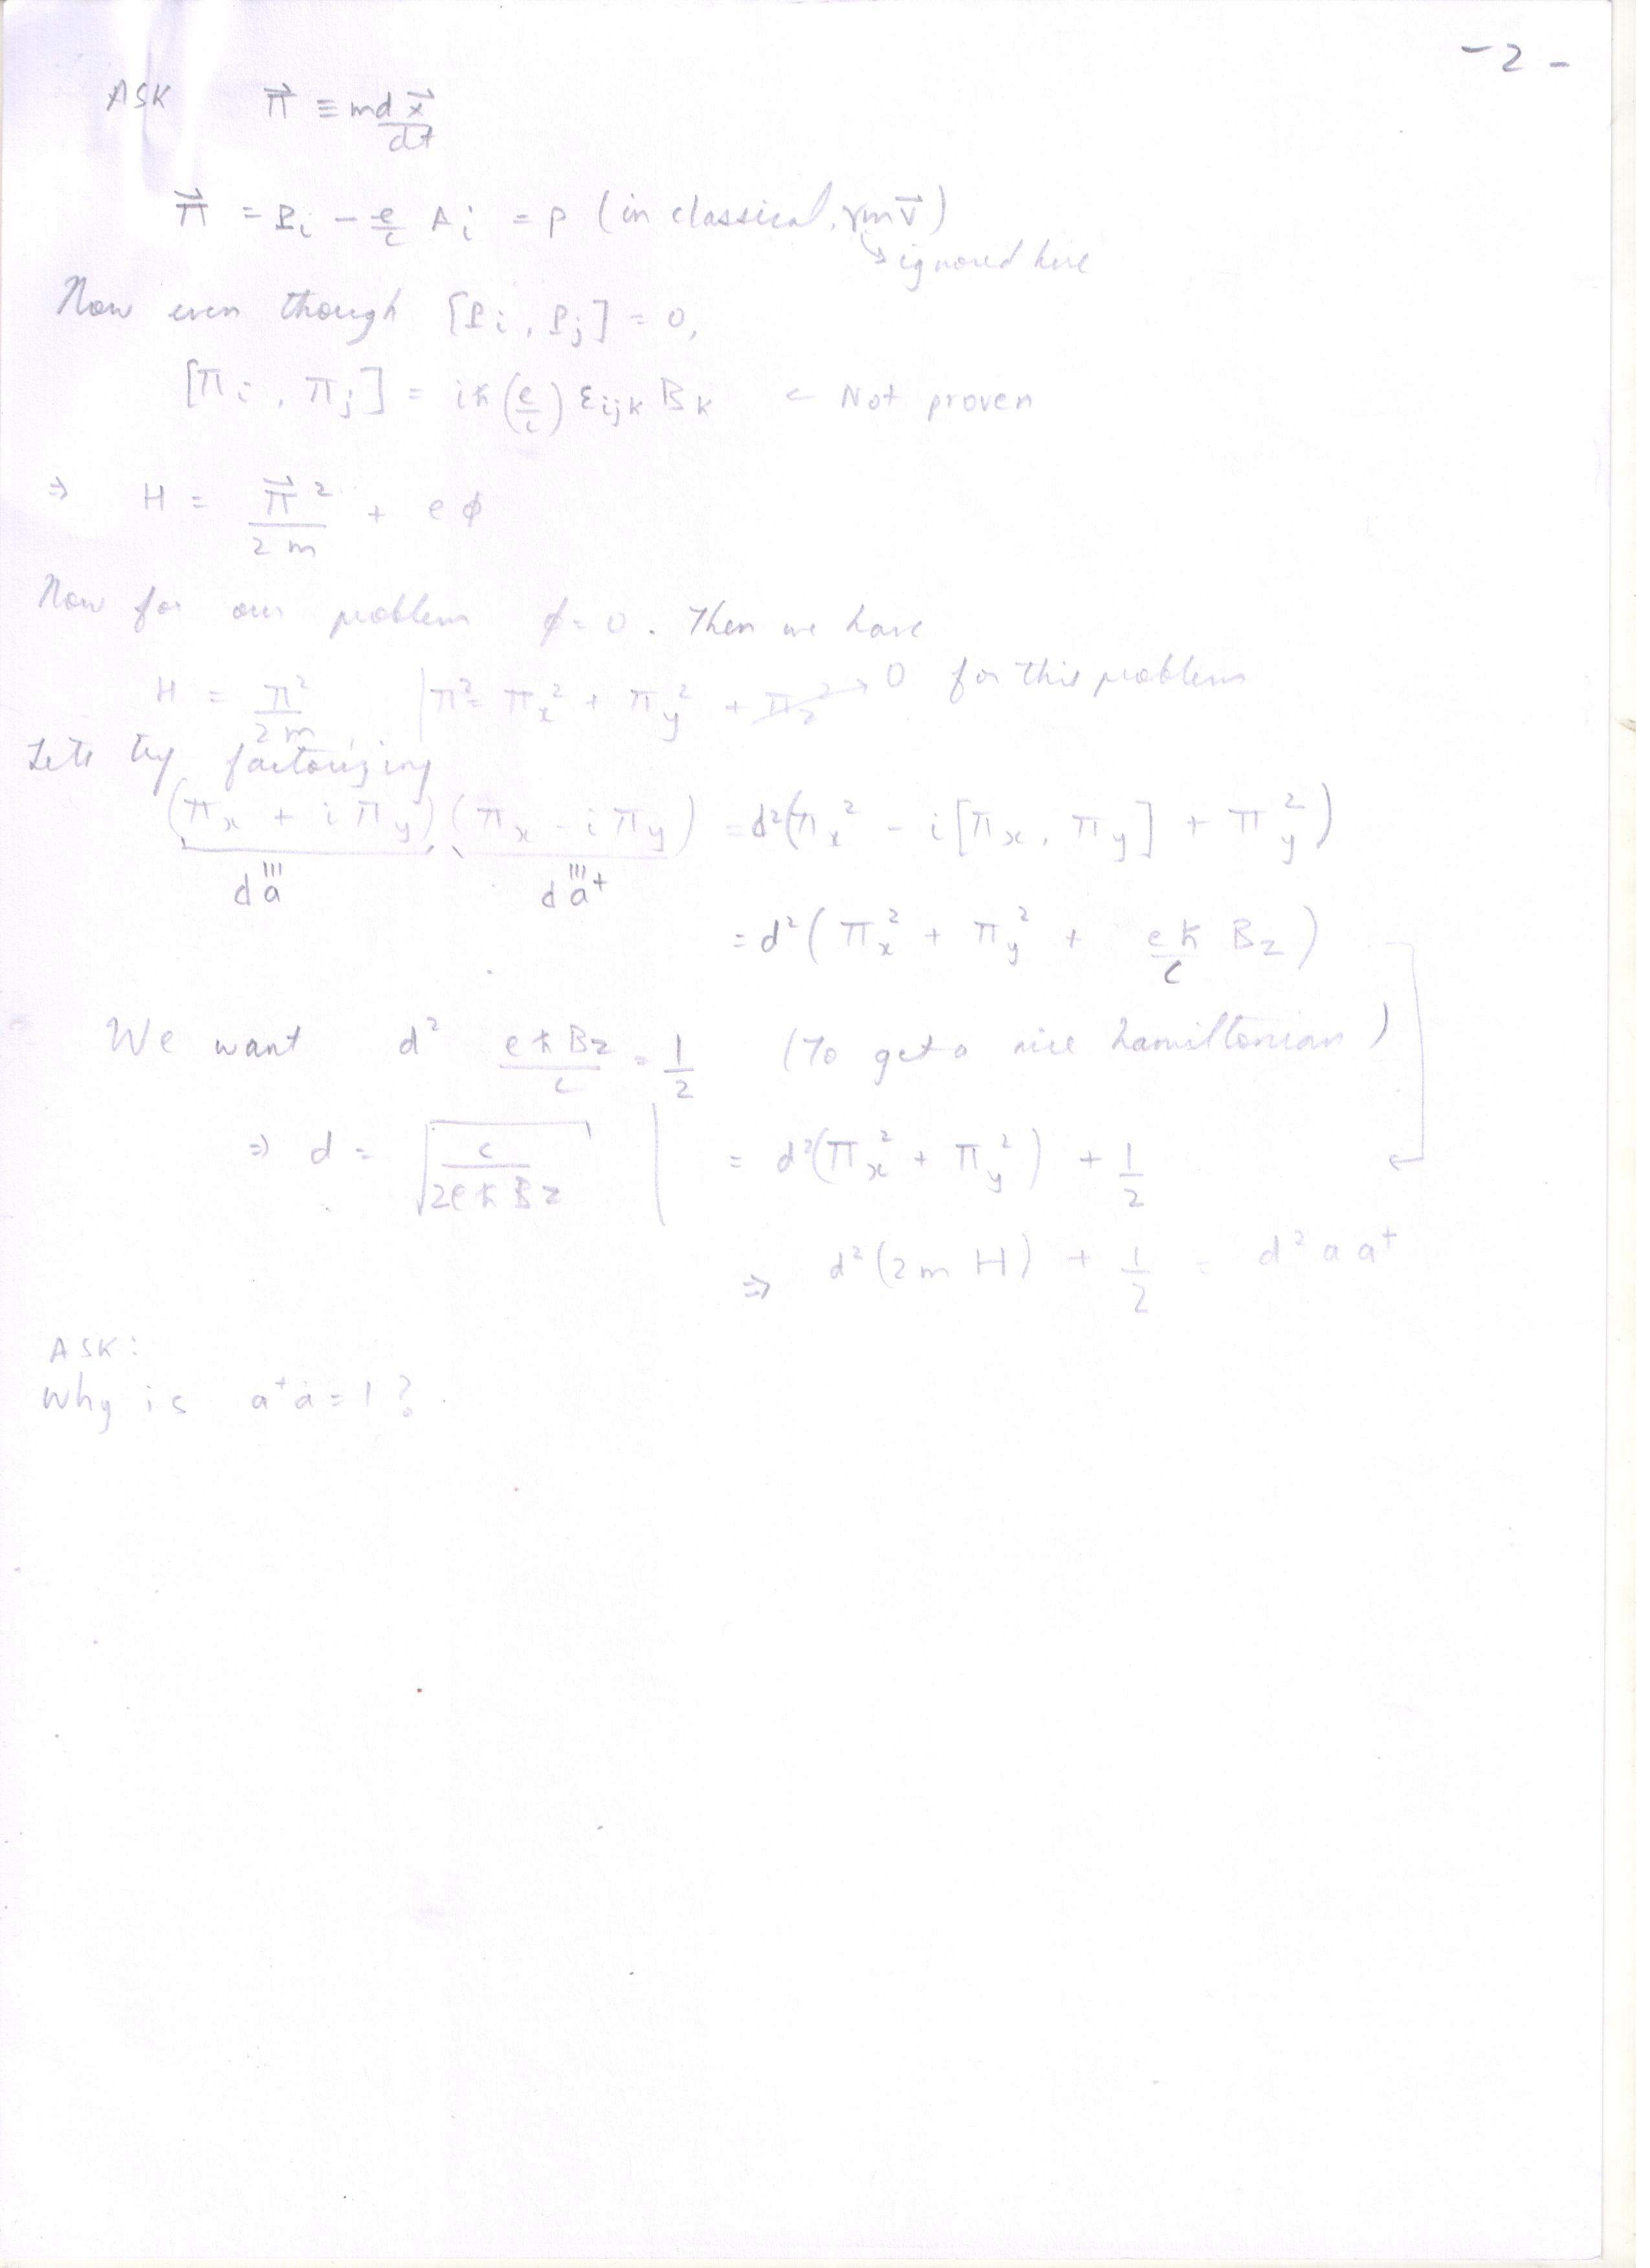 -2-
ASK π⃗ ≡ m dx⃗/dt
π⃗ = P_i - e/c A_i = p (in classical, γmv⃗)
↘ ignored here
Now even though [P_i, P_j] = 0,
[π_i, π_j] = iħ(e/c) ε_ijk B_k ← Not proven
⇒ H = π⃗²/2m + eφ
Now for our problem φ=0. Then we have
H = π²/2m | π² = π_x² + π_y² + π_z² → 0 for this problem
Lets try factorizing
(π_x + iπ_y)(π_x - iπ_y) = d²(π_x² - i[π_x, π_y] + π_y²)
da da†
= d²(π_x² + π_y² + eħ/c B_z)
We want d² eħB_z/c = 1/2 (To get a nice hamiltonian)
⇒ d = √(c/2eħB_z) | = d²(π_x² + π_y²) + 1/2
⇒ d²(2mH) + 1/2 = d² a a†
ASK:
Why is a†a = 1?